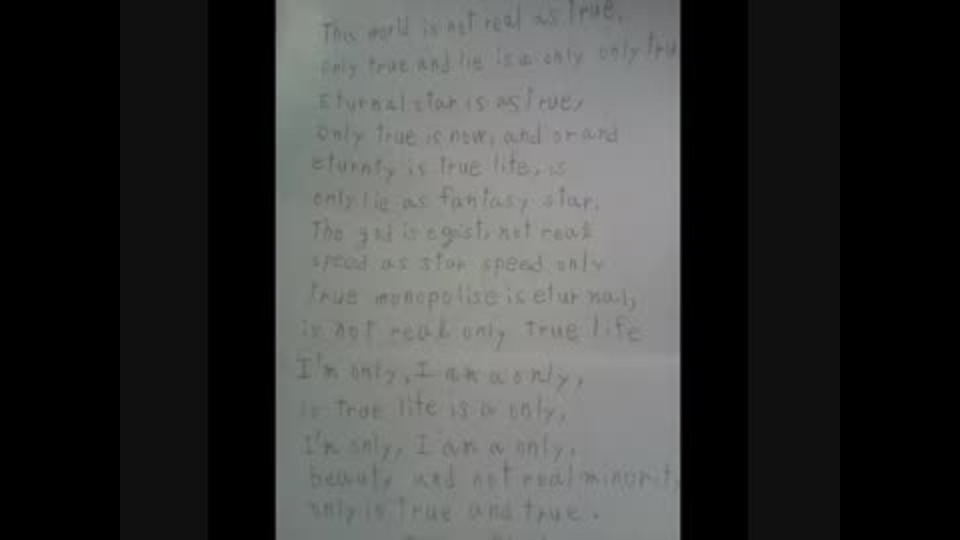 This world is not real as true,
only true and lie is a only only tru
Eturnal star is as true,
Only true is now, and or and
eturnty is true life, is
only lie as fantasy star,
The god is egist, not real
speed as star speed only
true monopolise is eturnal,
is not real only true life
I'm only, I am a only,
is true life is a only,
I'm only, I am a only,
beauty and not real minorit
only is true and true.